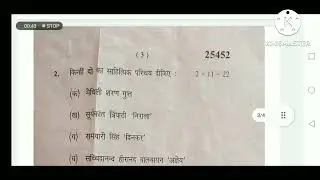 00:40 STOP
( 3 ) 25452
2. किन्हीं दो का साहित्यिक परिचय दीजिए : 2 × 11 = 22
(क) मैथिली शरण गुप्त
(ख) सूर्यकान्त त्रिपाठी 'निराला'
(ग) रामधारी सिंह 'दिनकर'
(घ) सच्चिदानन्द हीरानन्द वात्स्यायन 'अज्ञेय'